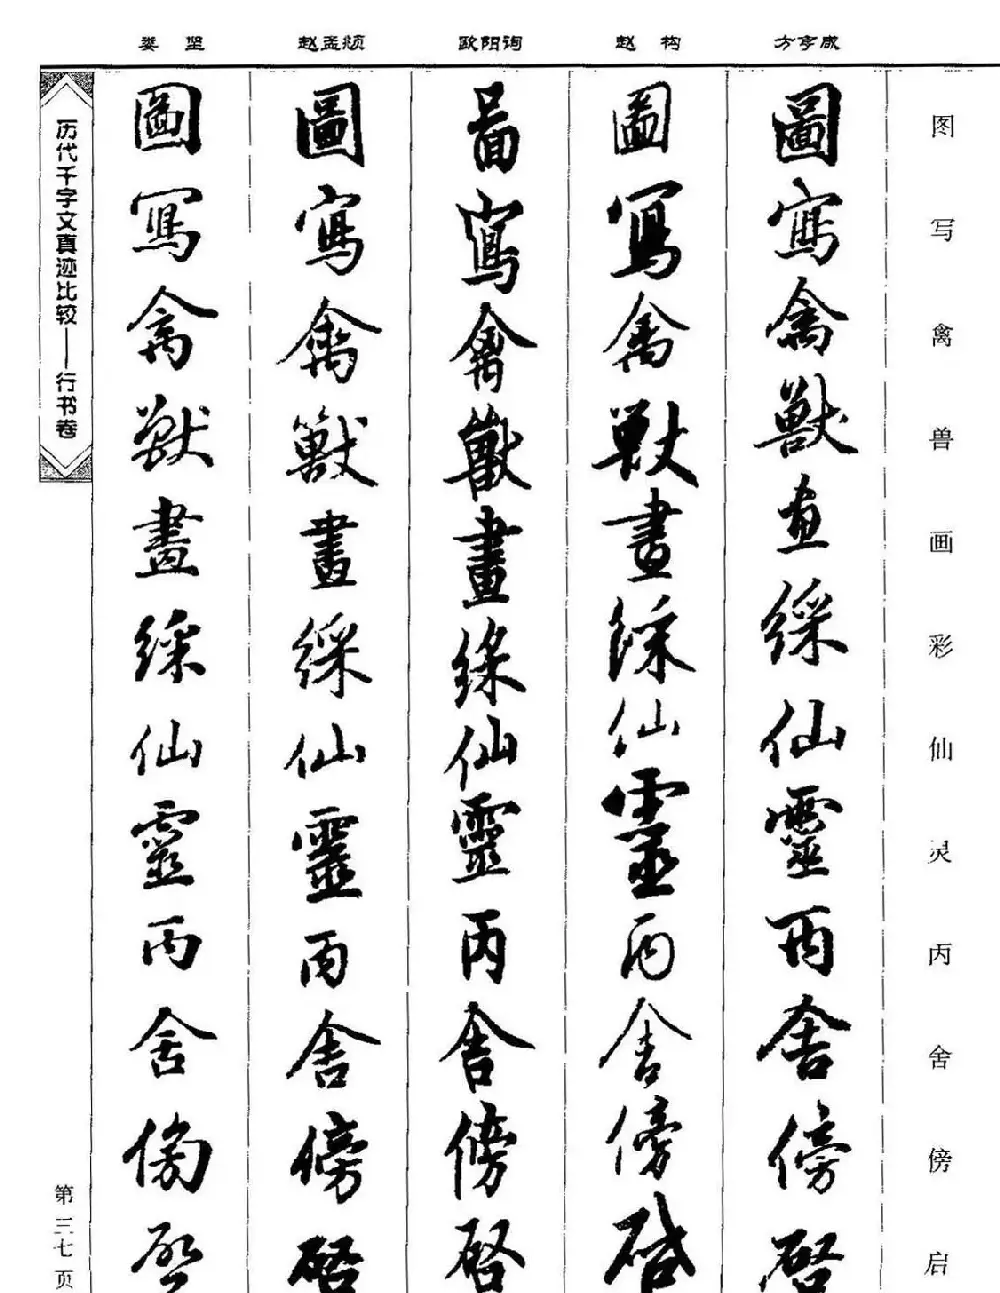 娄坚 赵孟頫 欧阳询 赵构 方亨咸
历代千字文真迹比较——行书卷
图写禽兽画彩仙灵丙舍傍启
圖寫禽獸畫綵仙靈丙舍傍啓
圖寫禽獸畫綵仙靈丙舍傍啓
圖寫禽獸畫綵仙靈丙舍傍啓
圖寫禽獸畫綵仙靈丙舍傍啓
圖寫禽獸畫綵仙靈丙舍傍啓
第三七页